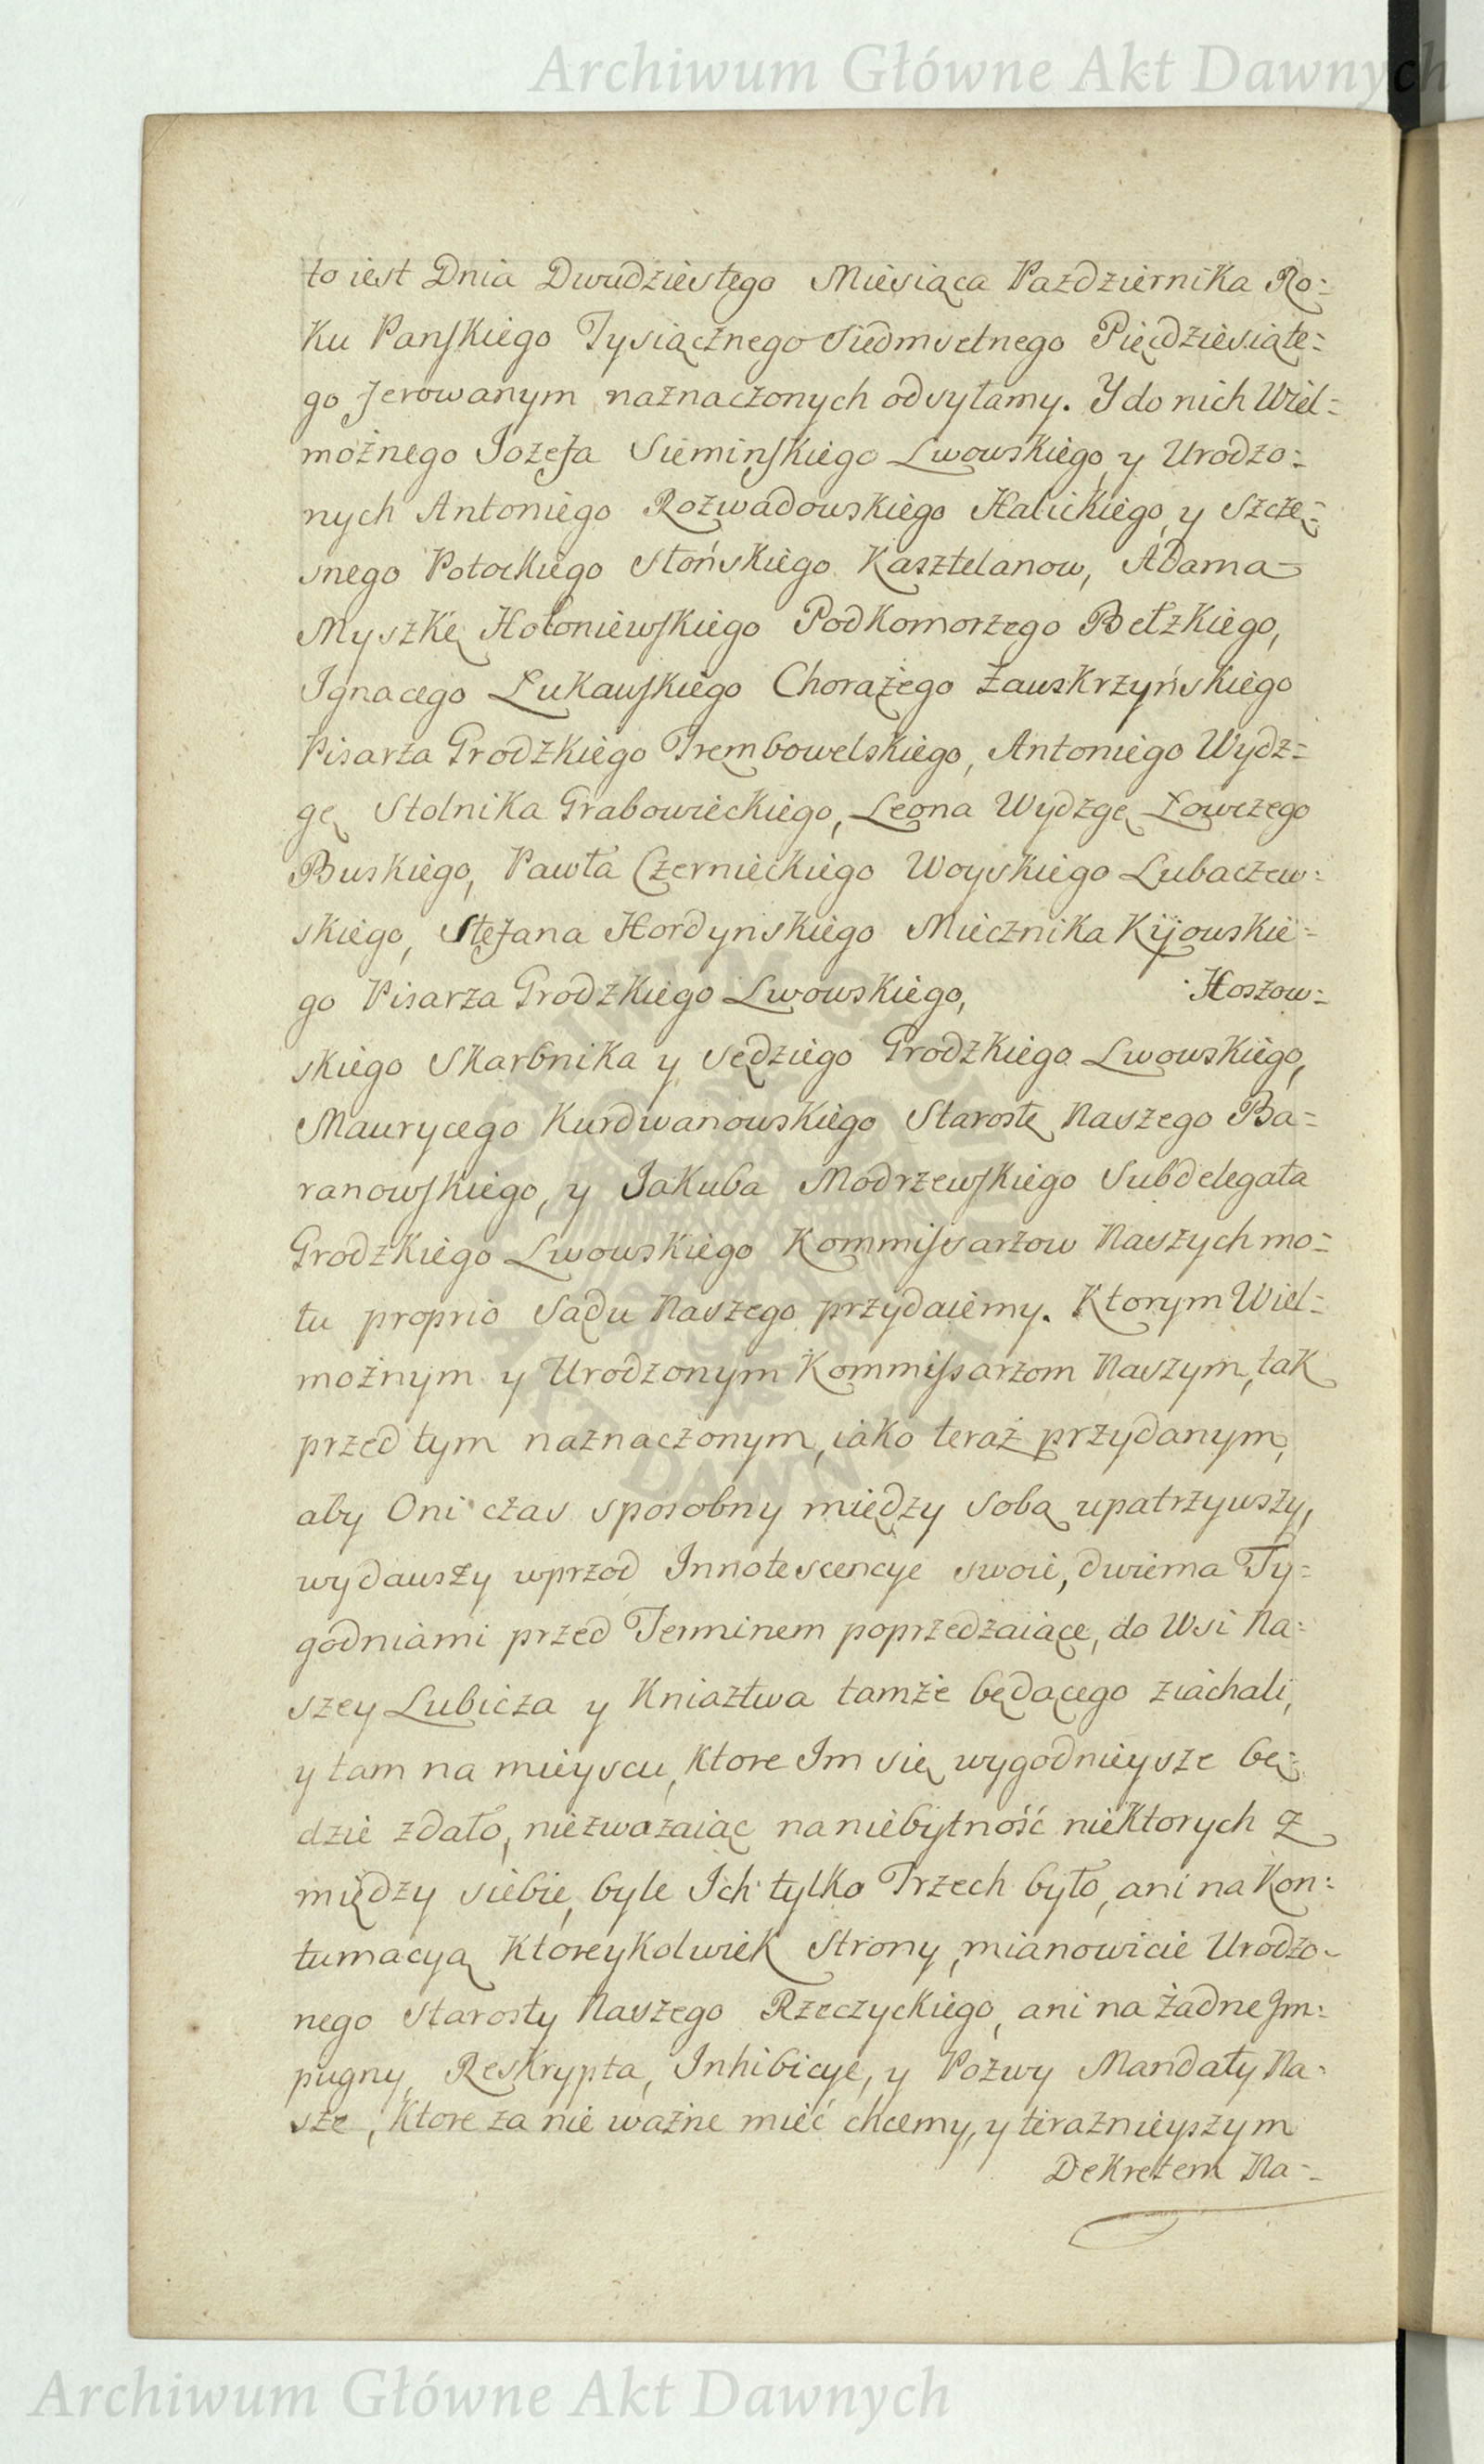 Archiwum Główne Akt Dawnych
to iest Dnia Dwudziestego Miesiąca Pazdziernika Ro-
ku Panskiego Tysiącznego Siedmsetnego Pięcdziesiąte-
go ferowanym naznaczonych odsyłamy. Y do nich Wiel-
możnego Jozefa Sieminskiego Lwowskiego y Urodzo-
nych Antoniego Rozwadowskiego Halickiego, y Szczę-
snego Potockiego Słońskiego Kasztelanow, Adama
Myszkę Hołoniewskiego Podkomorzego Bełzkiego,
Ignacego Łukawskiego Chorążego Zawskrzyńskiego
Pisarza Grodzkiego Trembowelskiego, Antoniego Wydz-
gę Stolnika Grabowieckiego, Leona Wydzgę Łowczego
Buskiego, Pawła Czernieckiego Woyskiego Lubaczew-
skiego, Stefana Hordynskiego Miecznika Kijowskie-
go Pisarza Grodzkiego Lwowskiego, Hoszow-
skiego Skarbnika y Sędziego Grodzkiego Lwowskiego,
Maurycego Kurdwanowskiego Starostę Naszego Ba-
ranowskiego, y Jakuba Modrzewskiego Subdelegata
Grodzkiego Lwowskiego Kommissarzow Naszych mo-
tu proprio Sądu Naszego przydaiemy. Ktorym Wiel-
możnym y Urodzonym Kommissarzom Naszym, tak
przed tym naznaczonym, iako teraz przydanym,
aby Oni czas sposobny między sobą upatrzywszy,
wydawszy wprzod Innotescencye swoie, dwiema Ty-
godniami przed Terminem poprzedzaiące, do Wsi Na-
szey Lubicza y Kniaztwa tamże będącego ziachali,
y tam na mieyscu, ktore Im się wygodnieysze bę-
dzie zdało, niezwazaiąc na niebytność niektorych z
między siebie, byle Ich tylko Trzech było, ani na Kon-
tumacyą ktoreykolwiek Strony, mianowicie Urodzo-
nego Starosty Naszego Rzeczyckiego, ani na żadne Im-
pugny, Reskrypta, Inhibicye, y Pozwy Mandaty Na-
sze, ktore za nie ważne mieć chcemy, y teraznieyszym
Dekretem Na-
Archiwum Główne Akt Dawnych